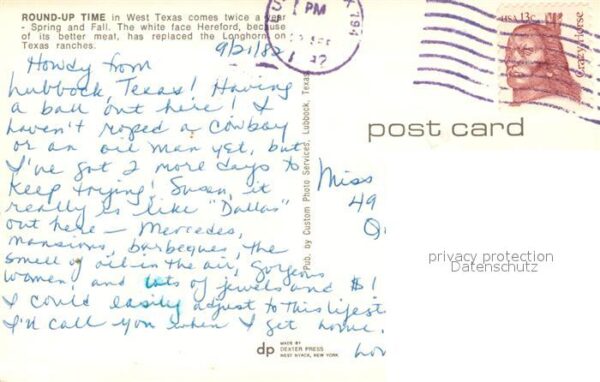 ROUND-UP TIME in West Texas comes twice a year
- Spring and Fall. The white face Hereford, because
of its better meat, has replaced the Longhorn on
Texas ranches.
9/21/82
Howdy from
Lubbock, Texas! Having
a ball out here! I
haven't roped a cowboy
or an oil man yet, but
I've got 2 more days to
keep trying! Susan, it
really is like "Dallas"
out here — Mercedes,
mansions, barbeques, the
smell of oil in the air, gorgeous
women and lots of jewels and $!
I could easily adjust to this lifest
I'll call you when I get home.
Pub. by Custom Photo Services, Lubbock, Texas
dp
MADE BY
DEXTER PRESS
WEST NYACK, NEW YORK
PM
USA 13c
Crazy Horse
post card
Miss
49
privacy protection
Datenschutz